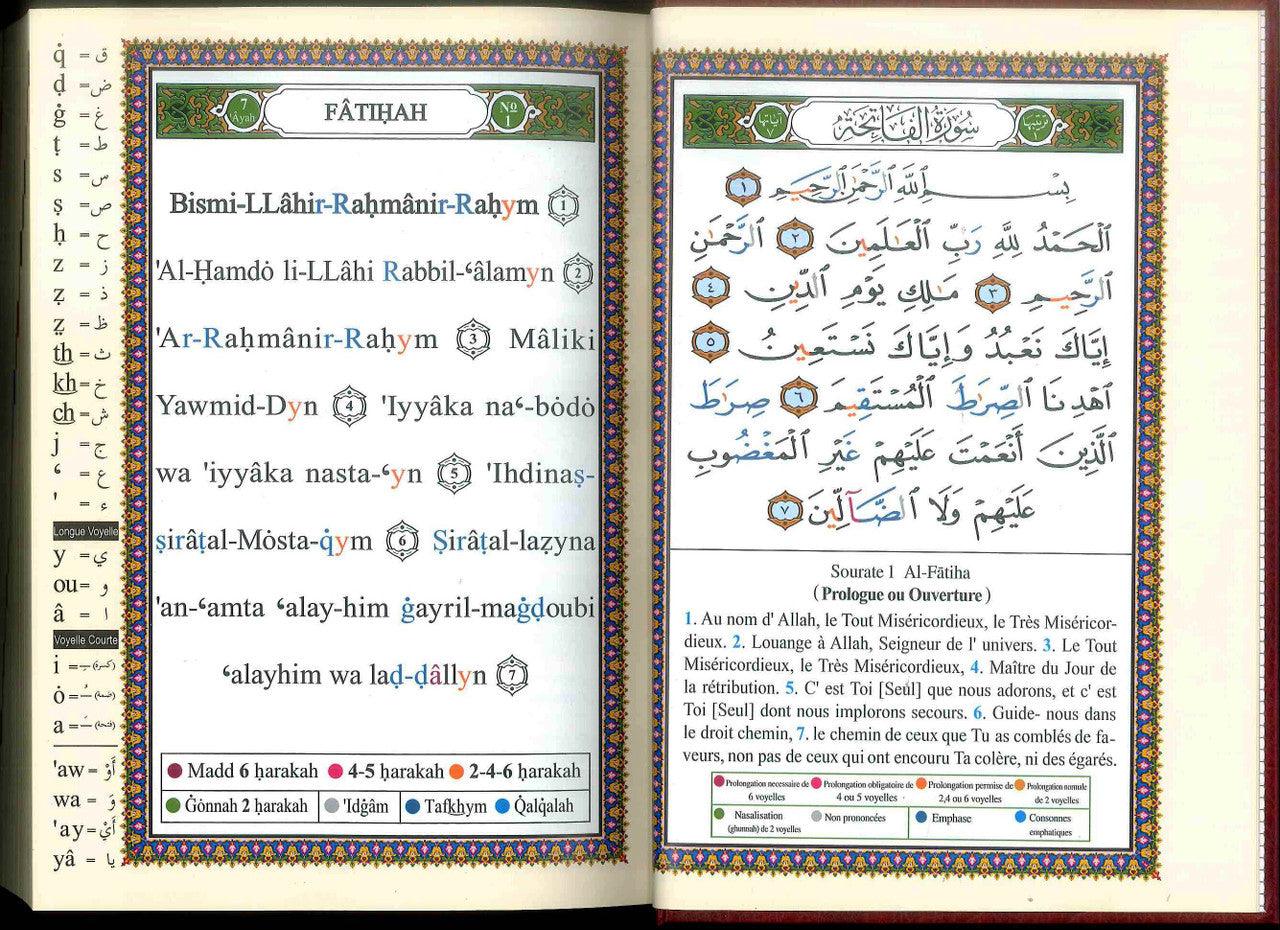 q̇ = ق
ḍ = ض
ġ = غ
ṭ = ط
s = س
ṣ = ص
ḥ = ح
z = ز
ẓ = ذ
ẓ = ظ
th = ث
kh = خ
ch = ش
j = ج
‘ = ع
' = ء
Longue Voyelle
y = ي
ou = و
â = ا
Voyelle Courte
i = ـِ (كسرة)
ȯ = ـُ (ضمة)
a = ـَ (فتحة)
'aw = أَوْ
wa = وَ
'ay = أَيْ
yâ = يا
7 Âyah FÂTIḤAH No 1
Bismi-LLâhir-Raḥmânir-Raḥym 1
'Al-Ḥamdȯ li-LLâhi Rabbil-‘âlamyn 2
'Ar-Raḥmânir-Raḥym 3 Mâliki
Yawmid-Dyn 4 'Iyyâka na‘-bȯdȯ
wa 'iyyâka nasta-‘yn 5 'Ihdinaṣ-
ṣirâṭal-Mȯsta-q̇ym 6 Ṣirâṭal-laẓyna
'an-‘amta ‘alay-him ġayril-maġḍoubi
‘alayhim wa laḍ-ḍâllyn 7
Madd 6 ḥarakah 4-5 ḥarakah 2-4-6 ḥarakah
Ġȯnnah 2 ḥarakah 'Idġâm Tafkhym Q̇alq̇alah
ترتيبها ١ سُورَةُ الفَاتِحَةِ آياتها ٧
بِسْمِ ٱللَّهِ ٱلرَّحْمَٰنِ ٱلرَّحِيمِ ١
ٱلْحَمْدُ لِلَّهِ رَبِّ ٱلْعَٰلَمِينَ ٢ ٱلرَّحْمَٰنِ
ٱلرَّحِيمِ ٣ مَٰلِكِ يَوْمِ ٱلدِّينِ ٤
إِيَّاكَ نَعْبُدُ وَإِيَّاكَ نَسْتَعِينُ ٥
ٱهْدِنَا ٱلصِّرَٰطَ ٱلْمُسْتَقِيمَ ٦ صِرَٰطَ
ٱلَّذِينَ أَنْعَمْتَ عَلَيْهِمْ غَيْرِ ٱلْمَغْضُوبِ
عَلَيْهِمْ وَلَا ٱلضَّآلِّينَ ٧
Sourate 1 Al-Fātiha
( Prologue ou Ouverture )
1. Au nom d' Allah, le Tout Miséricordieux, le Très Miséricor-
dieux. 2. Louange à Allah, Seigneur de l' univers. 3. Le Tout
Miséricordieux, le Très Miséricordieux, 4. Maître du Jour de
la rétribution. 5. C' est Toi [Seul] que nous adorons, et c' est
Toi [Seul] dont nous implorons secours. 6. Guide- nous dans
le droit chemin, 7. le chemin de ceux que Tu as comblés de fa-
veurs, non pas de ceux qui ont encouru Ta colère, ni des égarés.
Prolongation necessaire de 6 voyelles
Prolongation obligatoire de 4 ou 5 voyelles
Prolongation permise de 2,4 ou 6 voyelles
Prolongation normale de 2 voyelles
Nasalisation (ghunnah) de 2 voyelles
Non prononcées
Emphase
Consonnes emphatiques